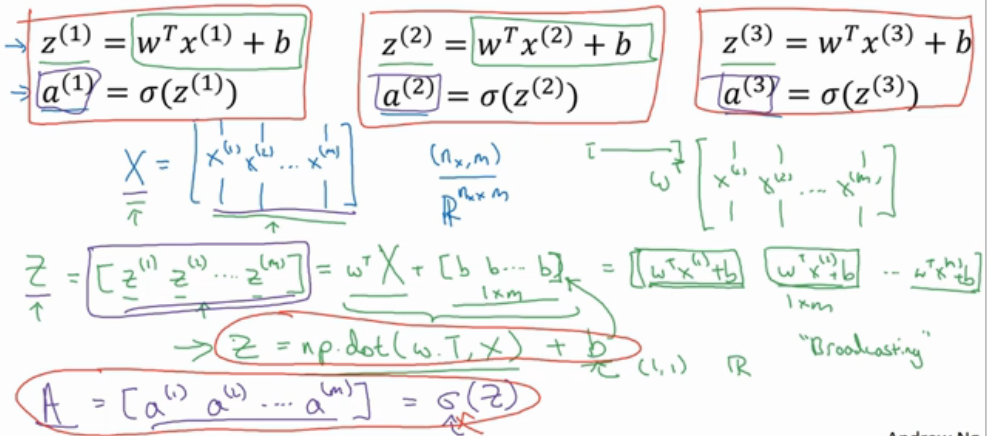 z^(1) = w^T x^(1) + b
a^(1) = σ(z^(1))
z^(2) = w^T x^(2) + b
a^(2) = σ(z^(2))
z^(3) = w^T x^(3) + b
a^(3) = σ(z^(3))
X = [x^(1) x^(2) ... x^(m)]
(n_x, m)
ℝ^(n_x × m)
w^T [x^(1) x^(2) .... x^(m)]
Z = [z^(1) z^(2) .... z^(m)] = w^T X + [b b ... b] = [w^T x^(1) + b w^T x^(2) + b ... w^T x^(m) + b]
1×m
1×m
→ Z = np.dot(w.T, X) + b
(1,1) ℝ
"Broadcasting"
A = [a^(1) a^(2) .... a^(m)] = σ(Z)